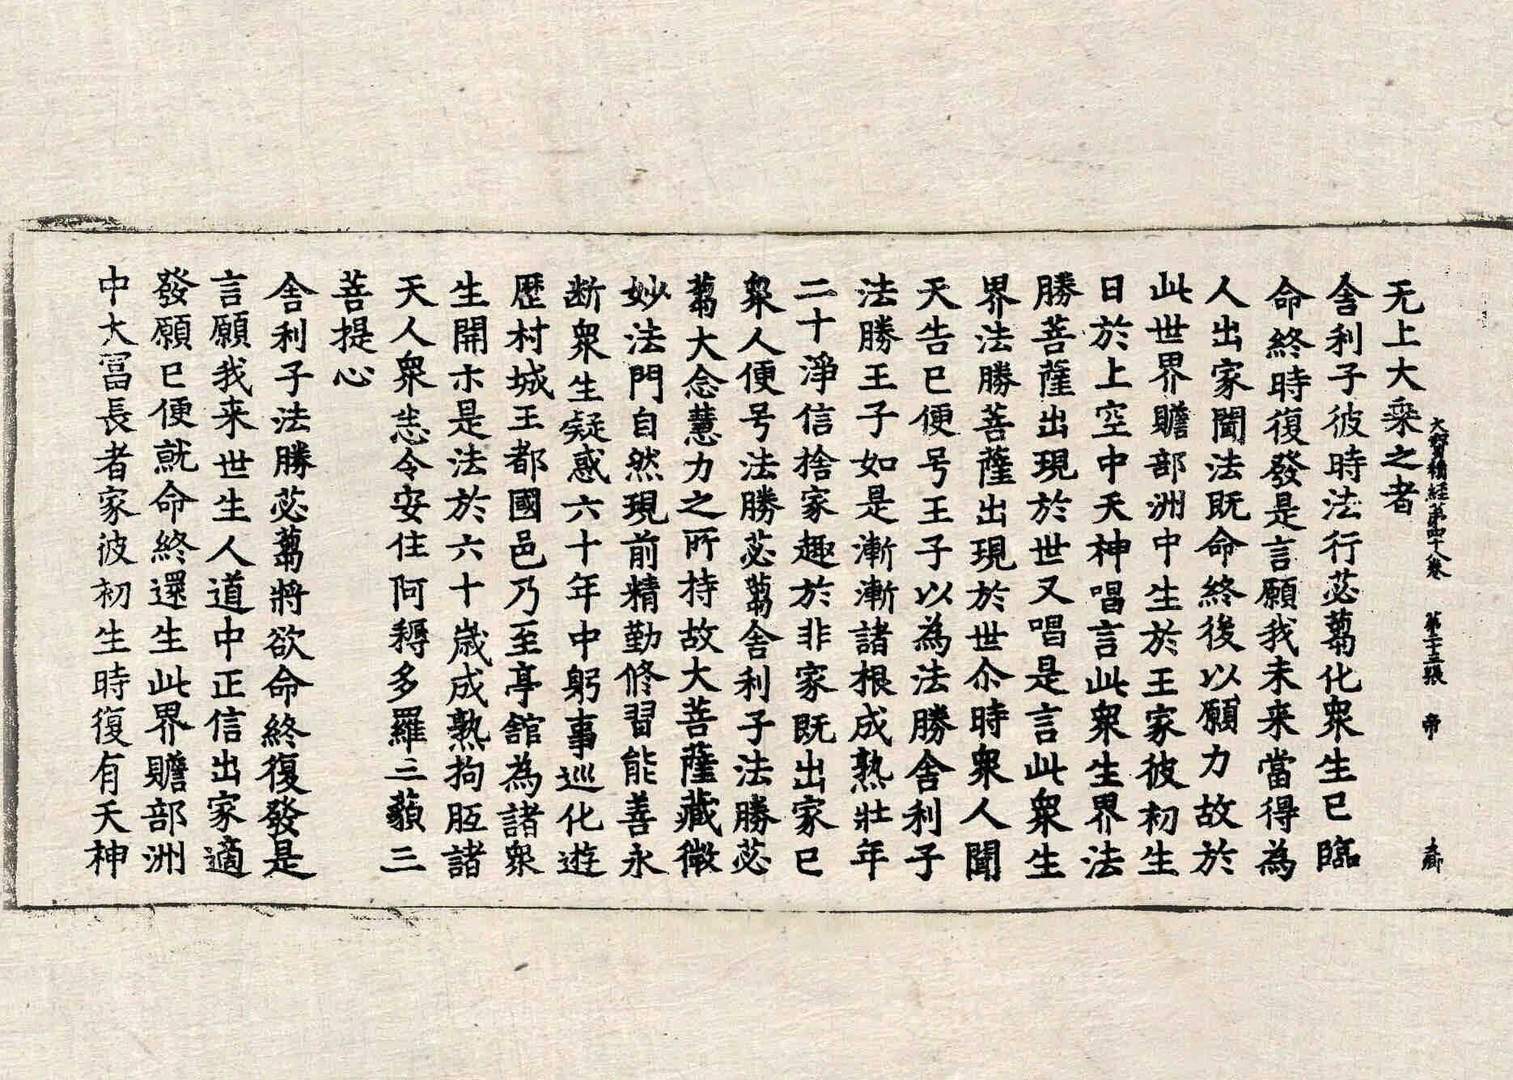 无上大乘之者
大寶積經第四十八卷 第二十五張 帝
舍利子彼時法行苾蒭化眾生已臨
命終時復發是言願我未來當得為
人出家聞法既命終後以願力故於
此世界贍部洲中生於王家彼初生
日於上空中天神唱言此眾生界法
勝菩薩出現於世又唱是言此眾生
界法勝菩薩出現於世尒時眾人聞
天告已便号王子以為法勝舍利子
法勝王子如是漸漸諸根成熟壯年
二十淨信捨家趣於非家既出家已
眾人便号法勝苾蒭舍利子法勝苾
蒭大念慧力之所持故大菩薩藏微
妙法門自然現前精勤修習能善永
断眾生疑惑六十年中躬事巡化遊
歷村城王都國邑乃至亭舘為諸眾
生開示是法於六十歲成熟拘胝諸
天人眾悉令安住阿耨多羅三藐三
菩提心
舍利子法勝苾蒭將欲命終復發是
言願我来世生人道中正信出家適
發願已便就命終還生此界贍部洲
中大冨長者家彼初生時復有天神